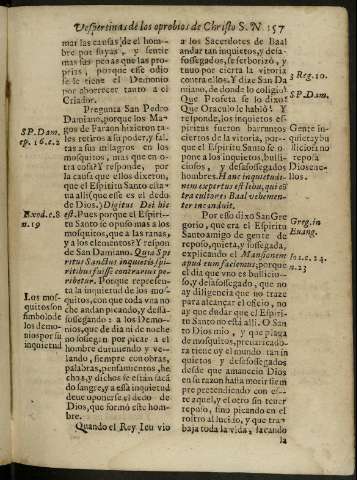 Vespertinas de los oprobios de Christo S. N. 157
mar las causas del hom-
bre por suyas, y sentir
mas sus penas que las pro-
prias, porque esse odio
se le tiene el Demonio
por aborrecer tanto a el
Criador.
Pregunta San Pedro
Damiano, porque los Ma-
gos de Faraon hizieron ta-
les retiros a Moysen, y fal-
tas a sus milagros en los
mosquitos, mas que en o-
tra cosa? Y responde, por
la causa que ellos dixeron,
que el Espiritu Santo esta-
va alli (que esse es el dedo
de Dios.) Digitus Dei hic
est. Pues porque el Espiri-
tu Santo se opuso mas a los
mosquitos, que a las ranas,
y a los elementos? Respon-
de San Damiano. Quia Sp
ritus Sanctus inquieto spi-
ritibus fuisse contrarius pe-
rhibetur. Porque represen-
ta la inquietud de los mos-
quitos, con que toda vna no
che andan picando, y dessa-
sossegando a los Demo-
nios, que de dia ni de noche
no sossegan por picar a el
hombre durmiendo y ve-
lando, siempre con obras,
palabras, pensamientos, he
chos, y dichos se estan sacā
do sangre, y a essa inquietud
deve oponerse el dedo de
Dios, que formó este hom-
bre.
Quando el Rey Ieu vio
SP. Dam.
ep. 16. c. 2
Exod. c. 8
n. 19
Los mos-
quitos son
simbolo de
los demo-
nios por su
inquietud
a los Sacerdotes de Baal
andar tan inquietos, y desa-
sossegados, se esforzó, y
tuuo por cierta la vitoria
contra ellos. Y dize San Da
miano, de donde lo coligió?
Que Profeta se lo dixo?
Que Oraculo le habló? Y
responde, los inquietos es-
piritus fueron barruntos
ciertos de la vitoria, por-
que el Espiritu Santo inspi-
ró, que hombres tan bulli-
ciosos, y desasossegados
hombres. Hanc inquietudi-
nem expertus est Iehu, qui cō
tra cultores Baal vehemen-
ter incanduit.
Por esso dixo San Gre
gorio, que era el Espiritu
Santo amigo de gente de
reposo, quieta, y sossegada,
explicando el Mansionem
apud eum faciemus, porque
el dia que vno es bullicio-
so, y desasossegado, que no
ay diligencia que no traze
para alcançar el oficio, no
ay que dudar que el Espiri-
tu Santo no està alli. O San
to Dios mio, y que plaga
de mosquitos, prevaricado-
ra tiene oy el mundo tan in
quietos y desasossegados
desde que amanecio Dios
en su razon hasta morir siem
pre pretendiendo con es-
te aquel, y el otro sin tener
reposo, sino picando en el
rostro al lucido, y que tra-
baja toda la vida, sacando
la
3 Reg. 10.
SP. Dam.
Gente in-
quieta y bu
lliciosa no
reposa
Dios en e-
llos.
Greg. in
Euang.
Io. c. 14.
n. 23